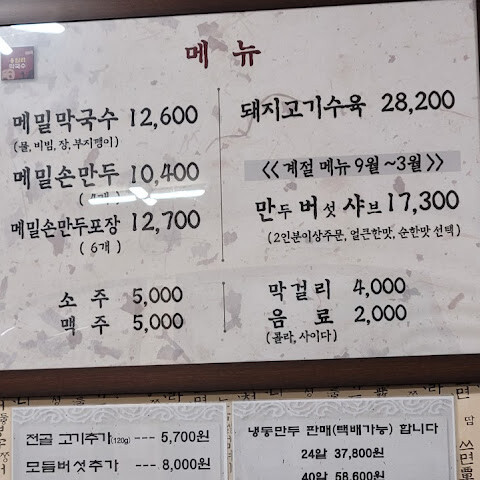 메 뉴
메밀막국수 12,600
(물, 비빔, 장, 부지깽이)
메밀손만두 10,400
메밀손만두포장 12,700
( 6개 )
소 주 5,000
맥 주 5,000
돼지고기수육 28,200
<< 계절 메뉴 9월 ~3월 >>
만두 버섯 샤브 17,300
(2인분이상주문, 얼큰한맛, 순한맛 선택)
막걸리 4,000
음 료 2,000
(콜라, 사이다)
전골 고기추가 (120g) --- 5,700원
모듬버섯추가 --- 8,000원
냉동만두 판매(택배가능) 합니다
24알 37,800원
40알 58,600원